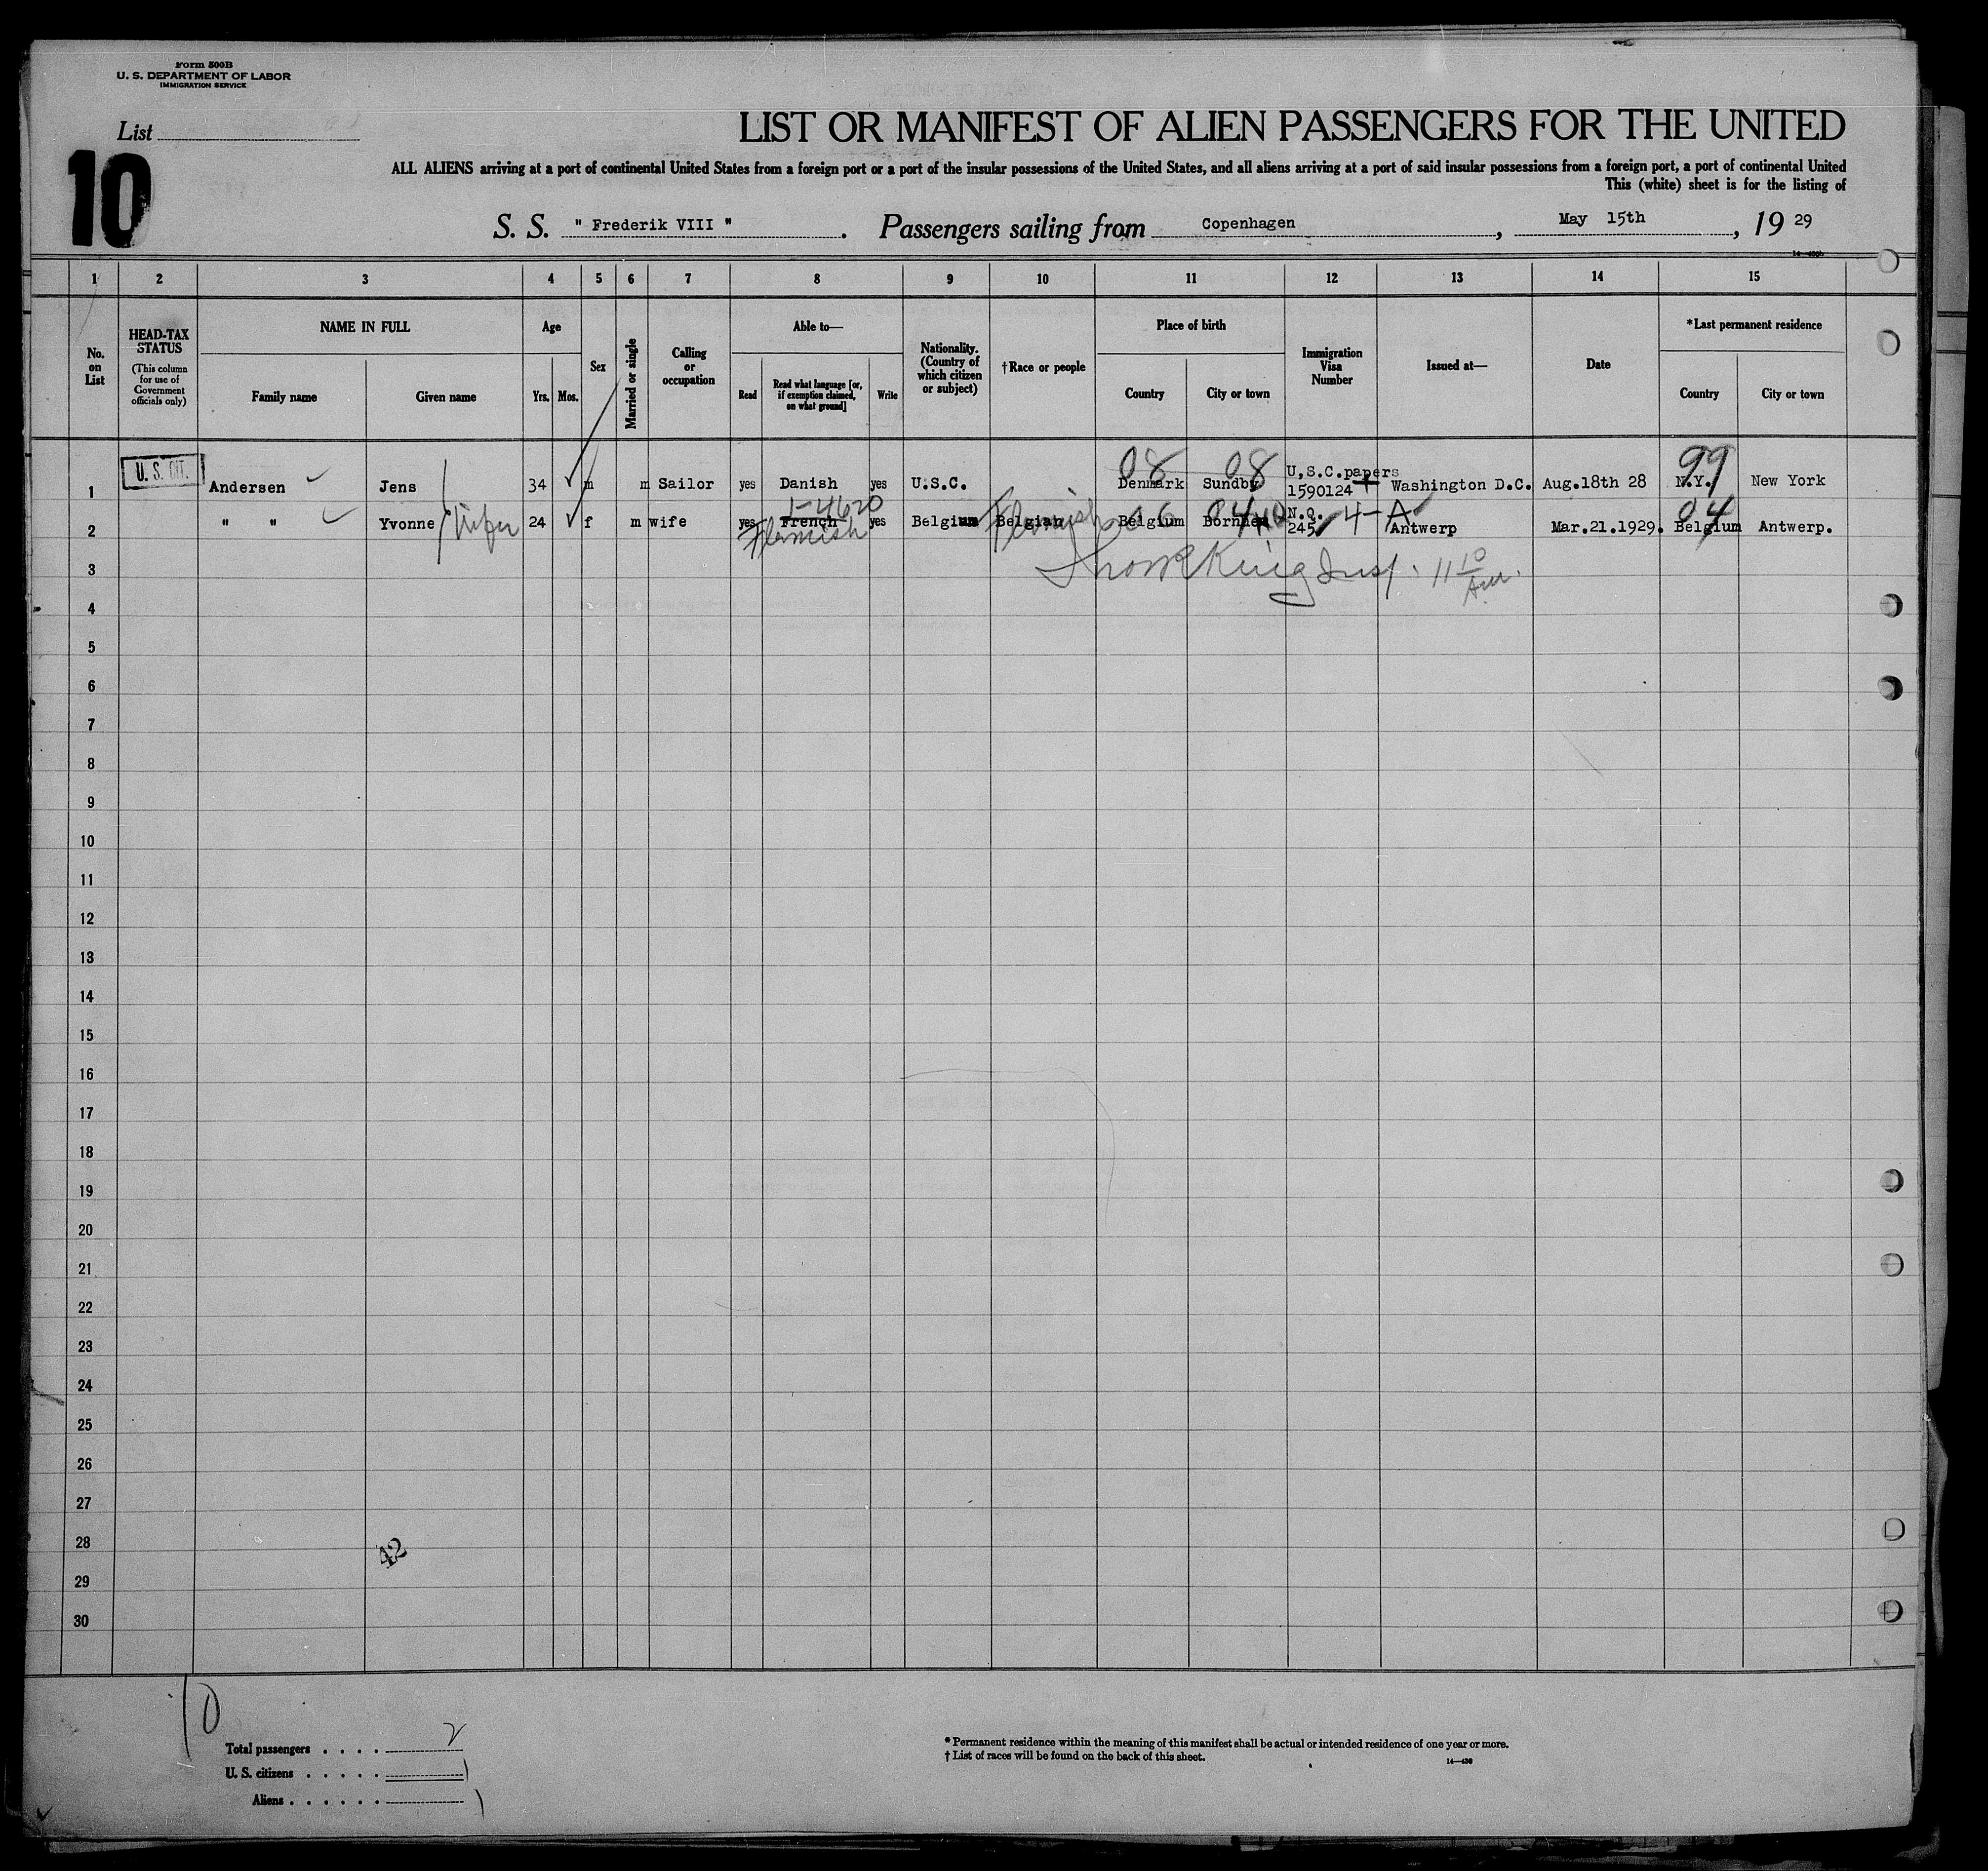 Form 500B
U. S. DEPARTMENT OF LABOR
IMMIGRATION SERVICE
List
10
LIST OR MANIFEST OF ALIEN PASSENGERS FOR THE UNITED
ALL ALIENS arriving at a port of continental United States from a foreign port or a port of the insular possessions of the United States, and all aliens arriving at a port of said insular possessions from a foreign port, a port of continental United
This (white) sheet is for the listing of
S. S. " Frederik VIII " . Passengers sailing from Copenhagen , May 15th , 19 29
1 2 3 4 5 6 7 8 9 10 11 12 13 14 15
No. on List
HEAD-TAX STATUS
(This column for use of Government officials only)
NAME IN FULL
Family name
Given name
Age
Yrs. Mos.
Sex
Married or single
Calling or occupation
Able to—
Read
Read what language [or, if exemption claimed, on what ground]
Write
Nationality. (Country of which citizen or subject)
†Race or people
Place of birth
Country
City or town
Immigration Visa Number
Issued at—
Date
*Last permanent residence
Country
City or town
08 08 99
1 U. S. CIT. Andersen Jens 34 m m Sailor yes Danish yes U.S.C. Denmark Sundby U,S.C.papers 1590124 Washington D.C. Aug.18th 28 N.Y. New York
2 " " Yvonne wife 24 f m wife yes French yes Belgium Belgian Belgium N.Q. 245 4-A Antwerp Mar.21.1929. Belgium Antwerp.
Flemish Flemish 04 04
King Insp. 11 10 Am.
3
4
5
6
7
8
9
10
11
12
13
14
15
16
17
18
19
20
21
22
23
24
25
26
27
28
42
29
30
10
Total passengers . . . . 2
U. S. citizens . . . . . 1
Aliens . . . . . . 1
* Permanent residence within the meaning of this manifest shall be actual or intended residence of one year or more.
† List of races will be found on the back of this sheet.